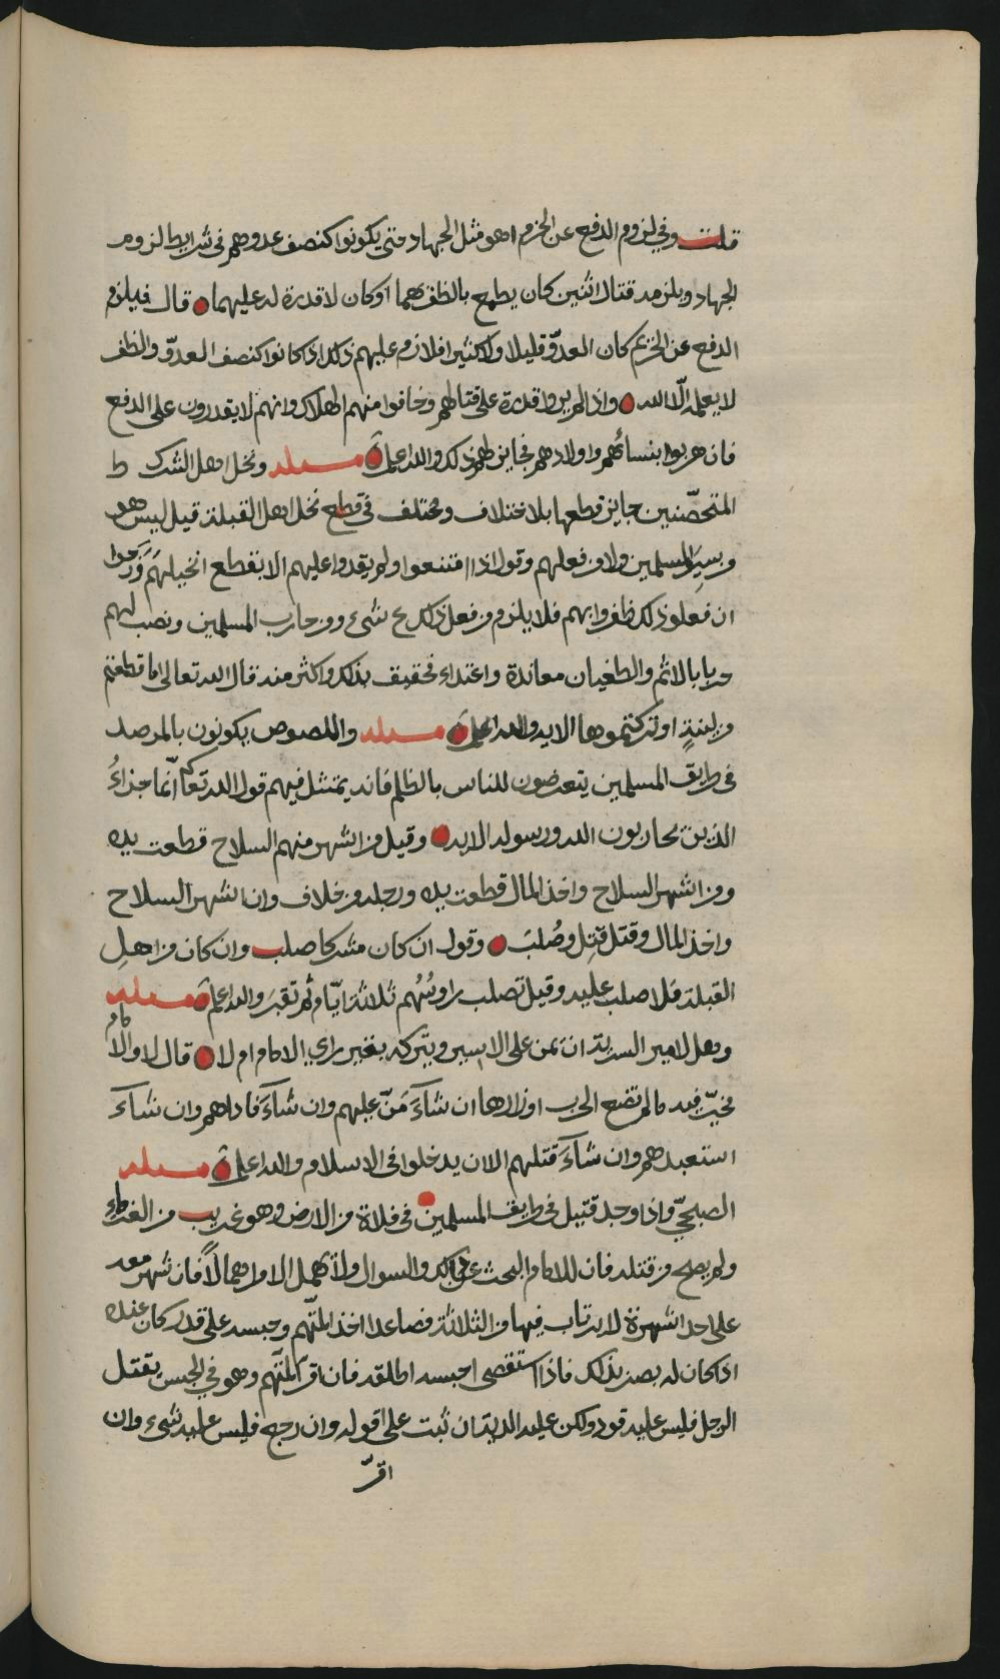 قلت وفي لزوم الدفع عن الحريم اهو مثل الجهاد متى يكونوا كنصف عدوهم في شرايط لزوم
الجهاد ويلزمه قتال اثنين كان يطمع بالظفر بهما او كان لا قدرة له عليهما قال فيلزم
الدفع عن الحريم كان العدوّ قليلا وكثيرا فلازم عليهم ذلك اذا كانوا كنصف العدوّ والظفر
لا يعلمه الّا الله واذا لم يروا قدرة على قتالهم وخافوا منهم الهلاك وانهم لا يقدرون على الدفع
فان هربوا بنسائهم واولادهم فجايز لهم ذلك والله اعلم مسئله ونخل اهل الشرك
المتحصّنين جايز قطعها بلا اختلاف ومختلف في قطع نخل اهل القبلة قيل ليس هو
من سِيَر المسلمين ولا من فعلهم وقول اذا امتنعوا ولم يقدوا عليهم الا بقطع نخيلهم ورجوا
ان فعلو ذلك ظفروا بهم فلا يلزم من فعل ذلك شيء ومن حارب المسلمين ونصب لهم
حربا بالاثم والطغيان معاندة واعتداء فحقيق بذلك واكثر منه قال الله تعالى ما قطعتم
من لينةٍ او تركتموها الايه والله اعلم مسئله واللصوص يكونون بالمرصد
في طريق المسلمين يتعرضون للناس بالظلم فانه يتمثل فيهم قول الله تعالى انّما جزاءُ
الذين يحاربون الله ورسوله الايه وقيل من اشهر منهم السلاح قطعت يده
ومن اشهر السلاح واخذ المال قطعت يده ورجله من خلاف وان اشهر السلاح
واخذ المال وقتل قُتِل وصُلبَ وقول ان كان مشركا صلب وان كان من اهلِ
القبلة فلا صلب عليه وقيل تصلب راوسُهُم ثلاثة ايّام ثم تقبَر والله اعلم مسئله
وهل لامير السرية ان يمن على الاسير ويتركه بغير راي الامام ام لا قال لا والامام
مخيّر فيه ما لم تضع الحرب اوزارها ان شآءَ مَنّ عليهم وان شآءَ فاداهم وان شآء
استعبدهم وان شآءَ قتلهم الا ان يدخلوا في الاسلام والله اعلم مسئله
الصبحيّ واذا وجد قتيل في طريق المسلمين في فلاة من الارض وهو غريب من الغرباء
ولم يصح من قتله فان للامام البحث عن ذلك والسوال ولا يهمل الامر اهمالاً فان شهر معه
على احد اشهرة لا يرتاب فيها من الثلاثة فصاعدا اخذ المتّهم وحبسه على قدر كان عنده
اذا كان له بصر بذلك فاذا استقصى حبسه اطلقه فان اقرّ المتّهم وهو في الحبس بقتل
الرجل فليس عليه قود ولكن عليه الدية ان ثبت على قوله وان رجع فليس عليه شيء وان
اقرّ